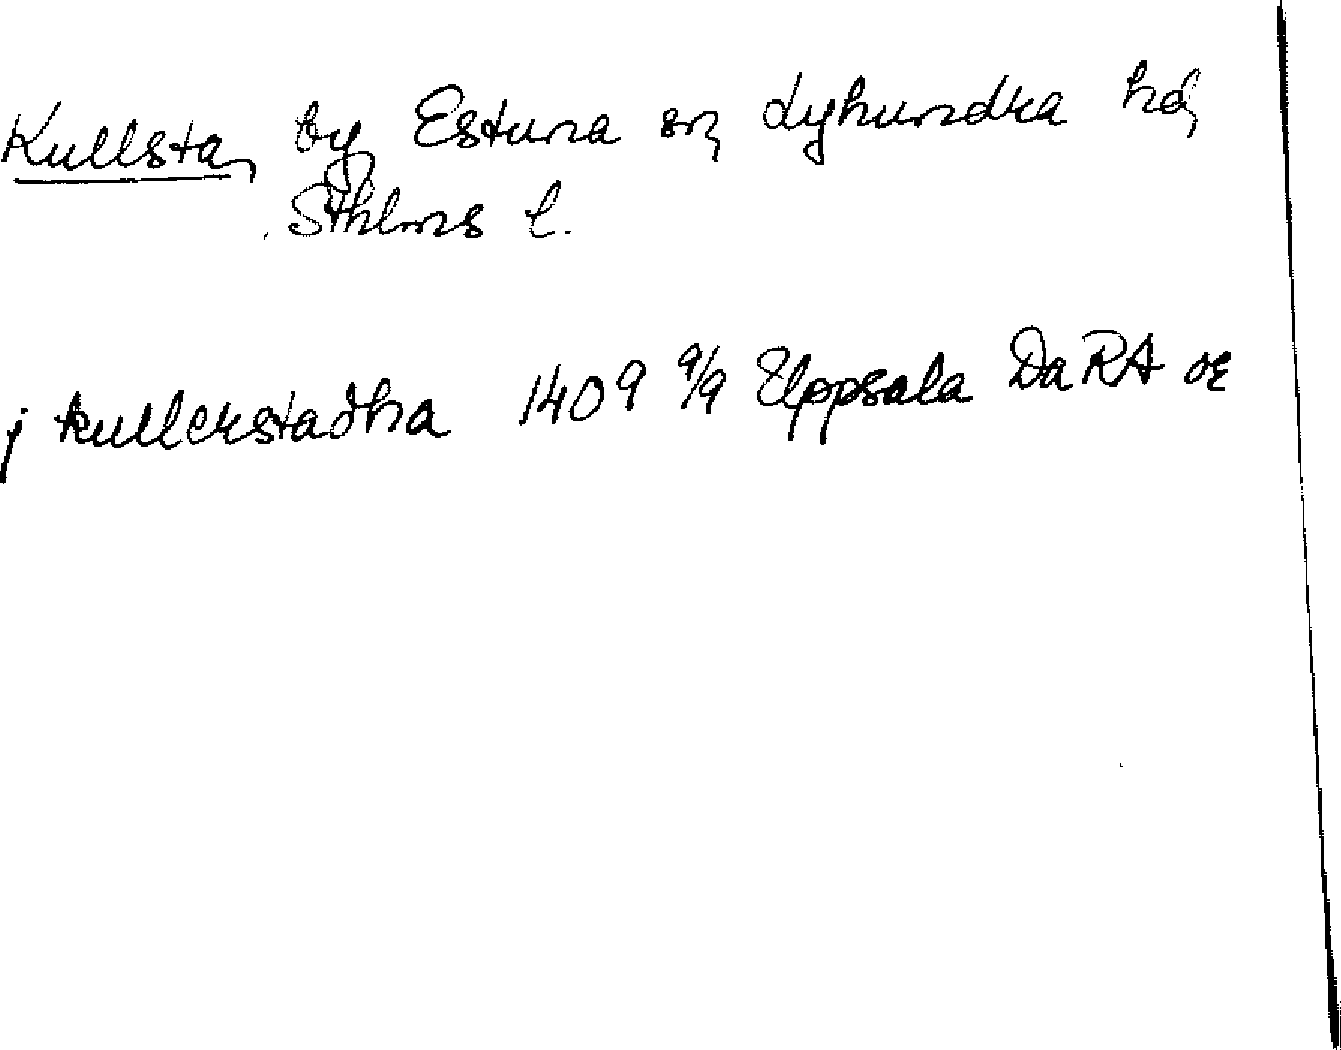 Kullsta, by, Estuna sn, Lyhundra hd,
Sthlms l.
j kullerstadhra 1409 9/9 Uppsala Da RA or